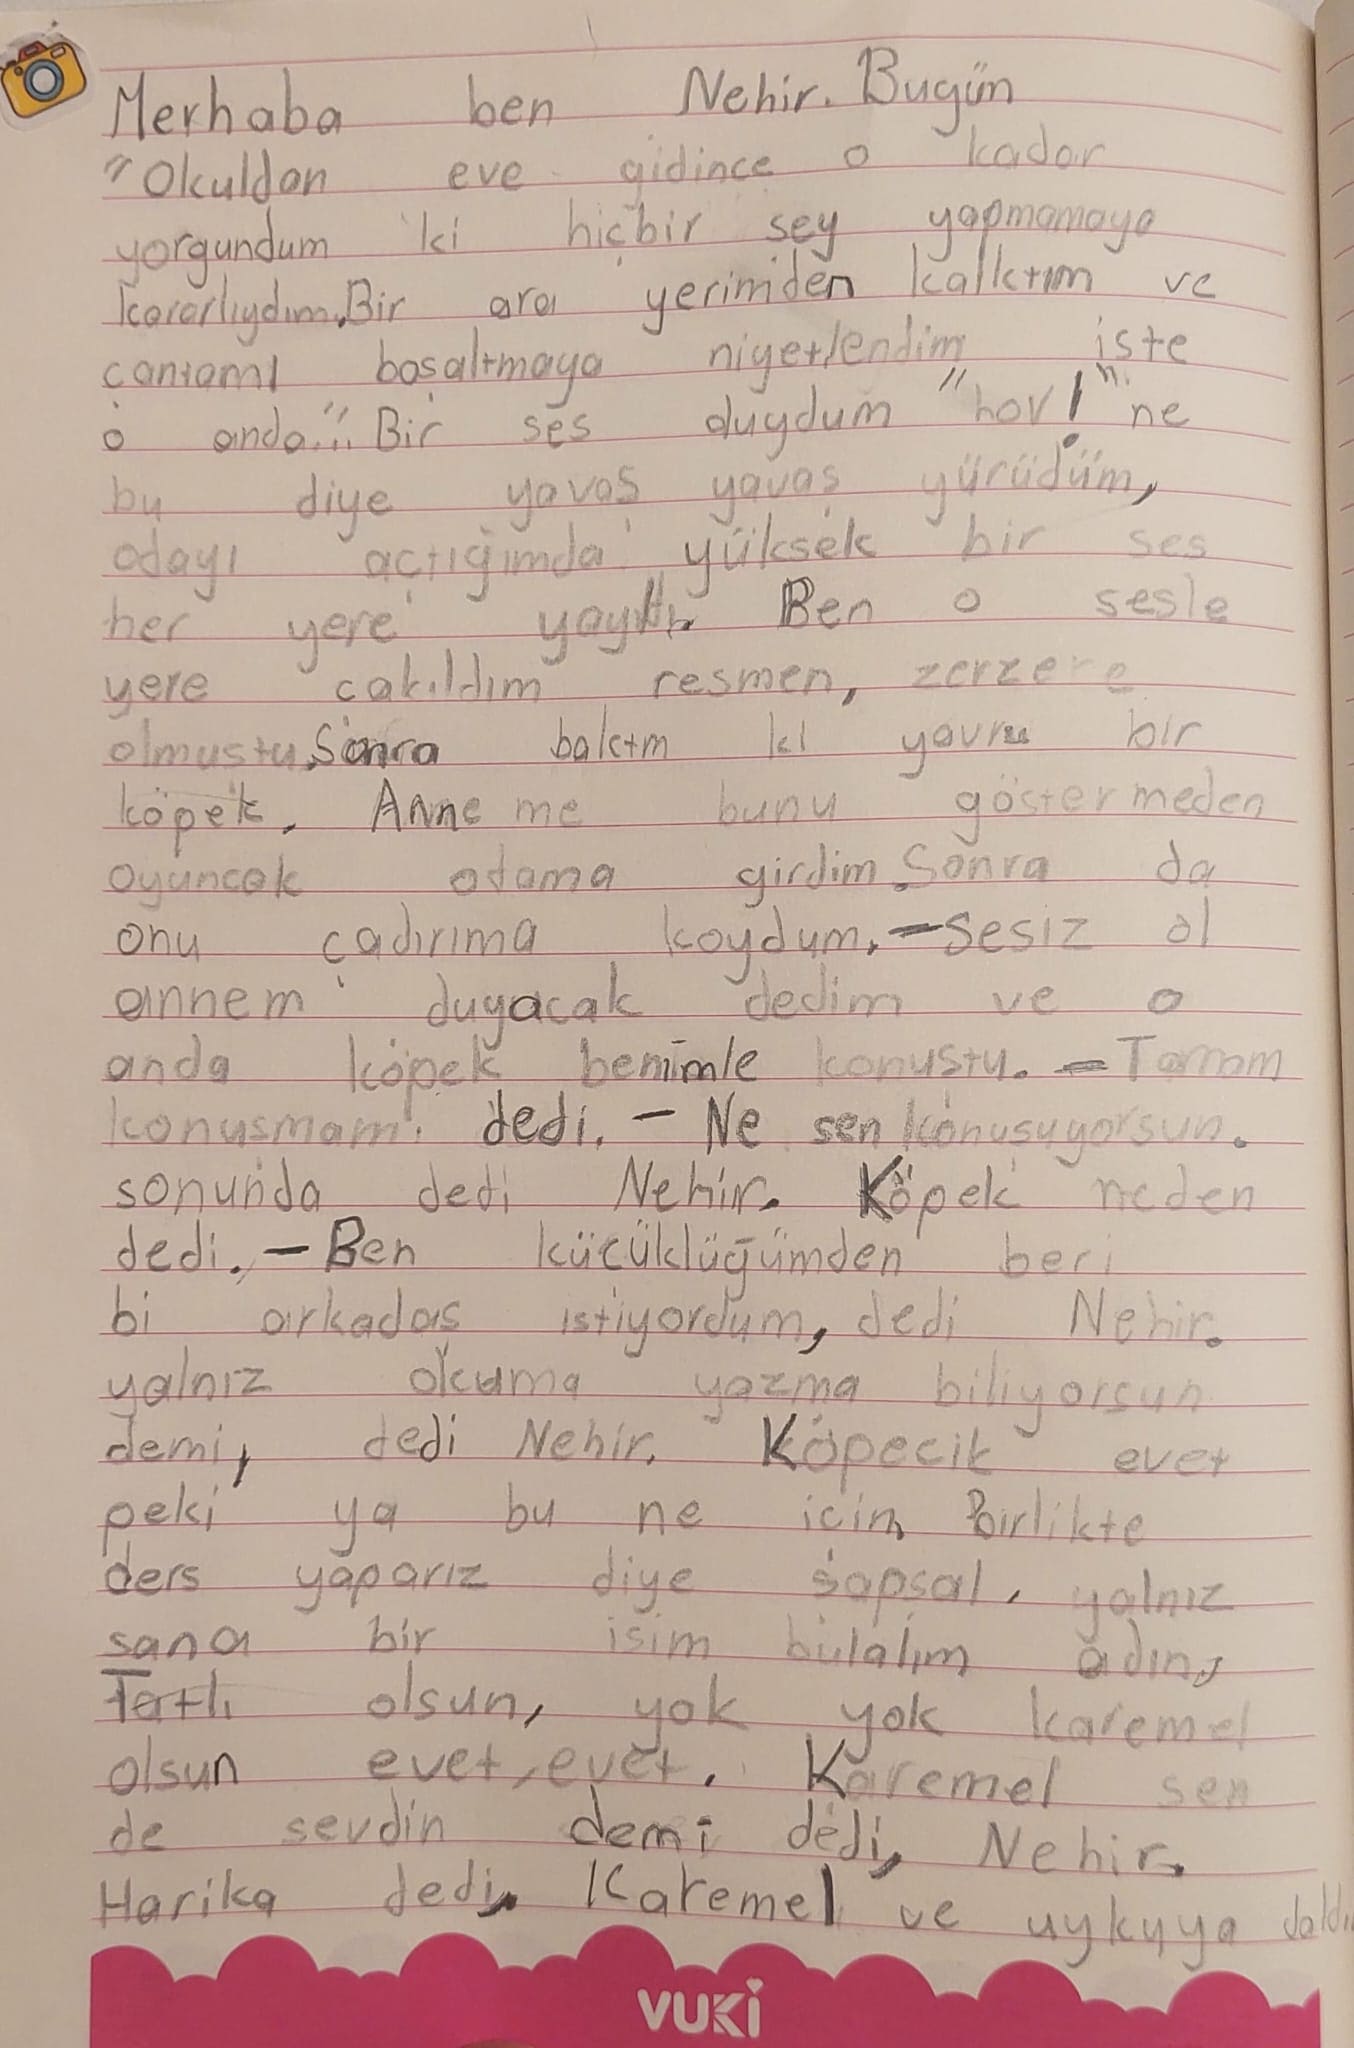 Merhaba ben Nehir. Bugün
"Okuldan eve gidince o kadar
yorgundum ki hiçbir sey yapmamaya
kararlıydım. Bir ara yerimden kalktım ve
çantamı boşaltmaya niyetlendim iste
o anda..." Bir ses duydum "hov!" ne
bu diye yavaş yavaş yürüdüm,
odayı açtığımda yüksek bir ses
her yere yayıltı. Ben o sesle
yere cakıldım resmen, zerzere
olmustu. Sonra baktım ki yavru bir
köpek. Anneme bunu göstermeden
oyuncak odama girdim. Sonra da
onu çadırıma koydum. - Sesiz ol
annem duyacak dedim ve o
anda köpek benimle konustu. - Tamam
konusmam! dedi. - Ne sen konuşuyorsun.
sonunda dedi Nehir. Köpek neden
dedi. - Ben kücüklüğümden beri
bi arkadas istiyordum, dedi Nehir.
yalnız okuma yazma biliyorsun
demi, dedi Nehir. Köpecik evet
peki ya bu ne icin Birlikte
ders yaparız diye şapşal, yalnız
sana bir isim bulalım adın,
Tatlı olsun, yok yok karemel
olsun evet, evet. Karemel sen
de sevdin demi dedi, Nehir.
Harika dedi, Karemel ve uykuya daldı
VUKi